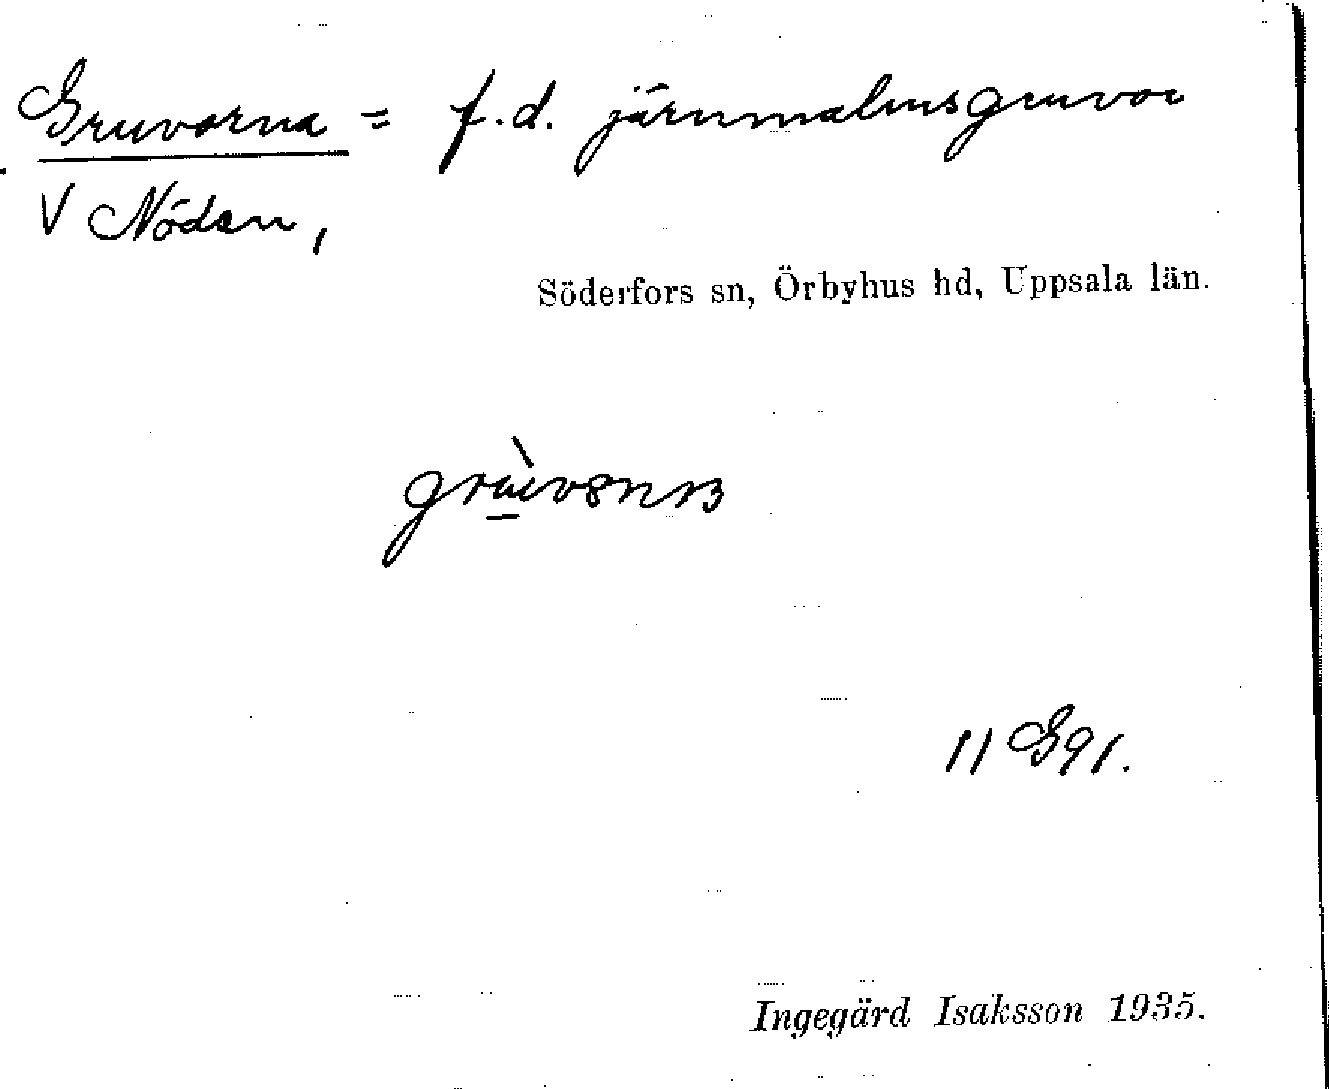 Gruvorna = f.d. järnmalmsgruvor
V Nöden,
Söderfors sn, Örbyhus hd, Uppsala län.
11 G91.
Ingegärd Isaksson 1935.